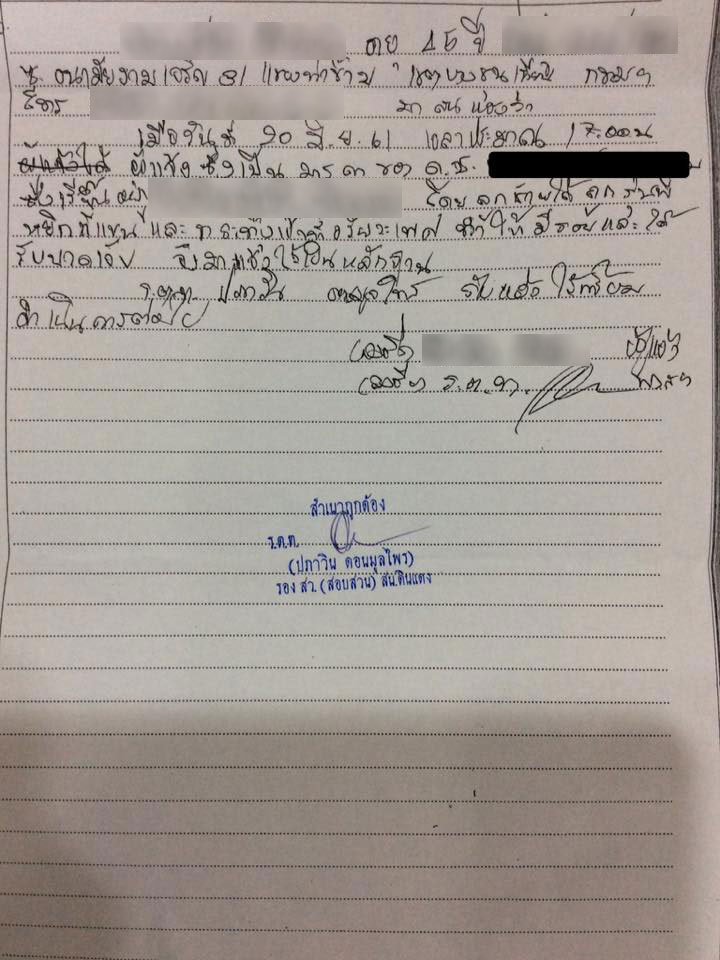 อายุ 45 ปี
ซ. อนามัยงามเจริญ 31 แขวงท่าข้าม เขตบางขุนเทียน กรุงเทพฯ
โทร มา สน แจ้งว่า
เมื่อวันที่ 20 มิ.ย. 61 เวลาประมาณ 17.00น
ผู้แจ้ง ซึ่งเป็น มารดา ของ ด.ช.
ซึ่งเรียน โดย ลูกชายได้ ถูก รุ่นพี่
หยิกที่แขน และ อวัยวะเพศ ทำให้ มีรอยและได้
รับบาดเจ็บ จึงมาแจ้งไว้เป็นหลักฐาน
ร.ต.ท. ปภาวิน ดอนมูลไพร รับแจ้งไว้พร้อม
ดำเนินการต่อไป
ลงชื่อ ผู้แจ้ง
ลงชื่อ ร.ต.ท.
สำเนาถูกต้อง
ร.ต.ท.
(ปภาวิน ดอนมูลไพร)
รอง สว.(สอบสวน) สน.ดินแดง